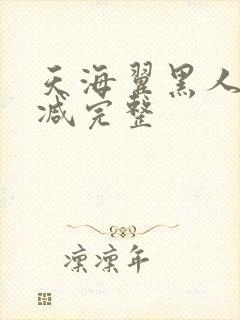 天海翼黑人
减完整
凛凛年